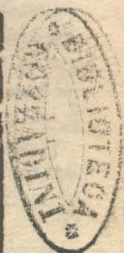 BIBLIOTECA
GOZZADINI